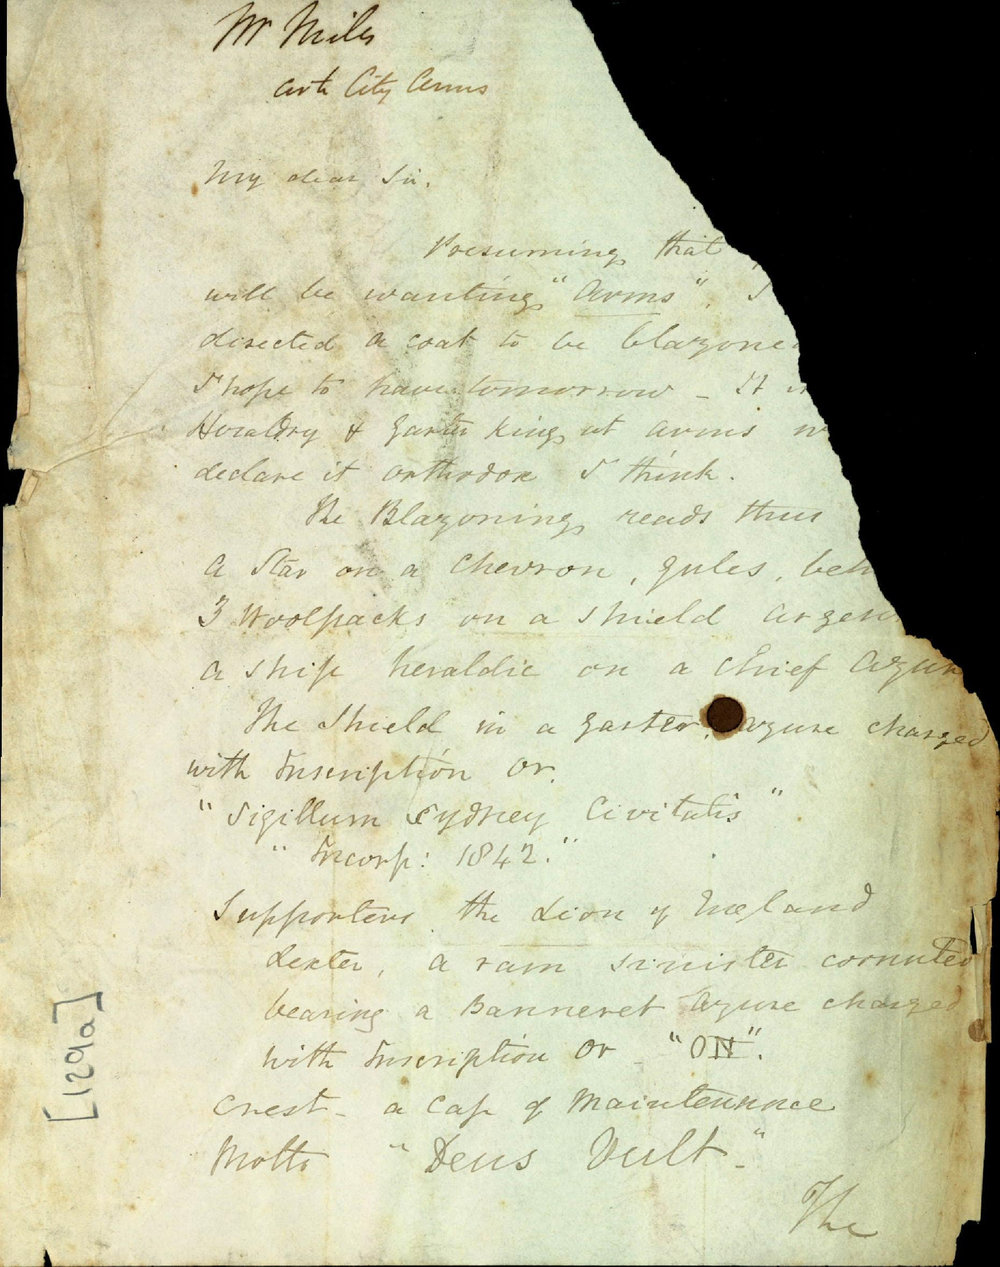 Mr Miles
City Arms
My dear Sir.
Presuming that
will be wanting "Arms". I
directed a coat to be blazone
I hope to have tomorrow - It is
Heraldry & Garter King at arms
declare it orthodox I think.
The Blazoning reads thus
A Star on a Chevron, gules, betw
3 Woolpacks on a Shield argen
a ship heraldic on a chief Azure
The Shield in a garter, azure charged
with Inscription Or.
"Sigillum Sydney Civitatis"
"Incorp: 1842."
Supporters the Lion of England
dexter, a ram sinister cornuted
bearing a Banneret Azure charged
with Inscription Or - "ON".
Crest - a Cap of Maintenance
Motto "Deus Vult" -
The
[129a]